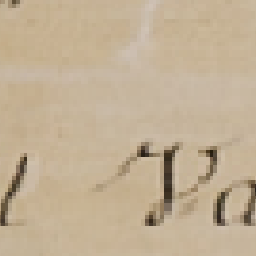 l Va